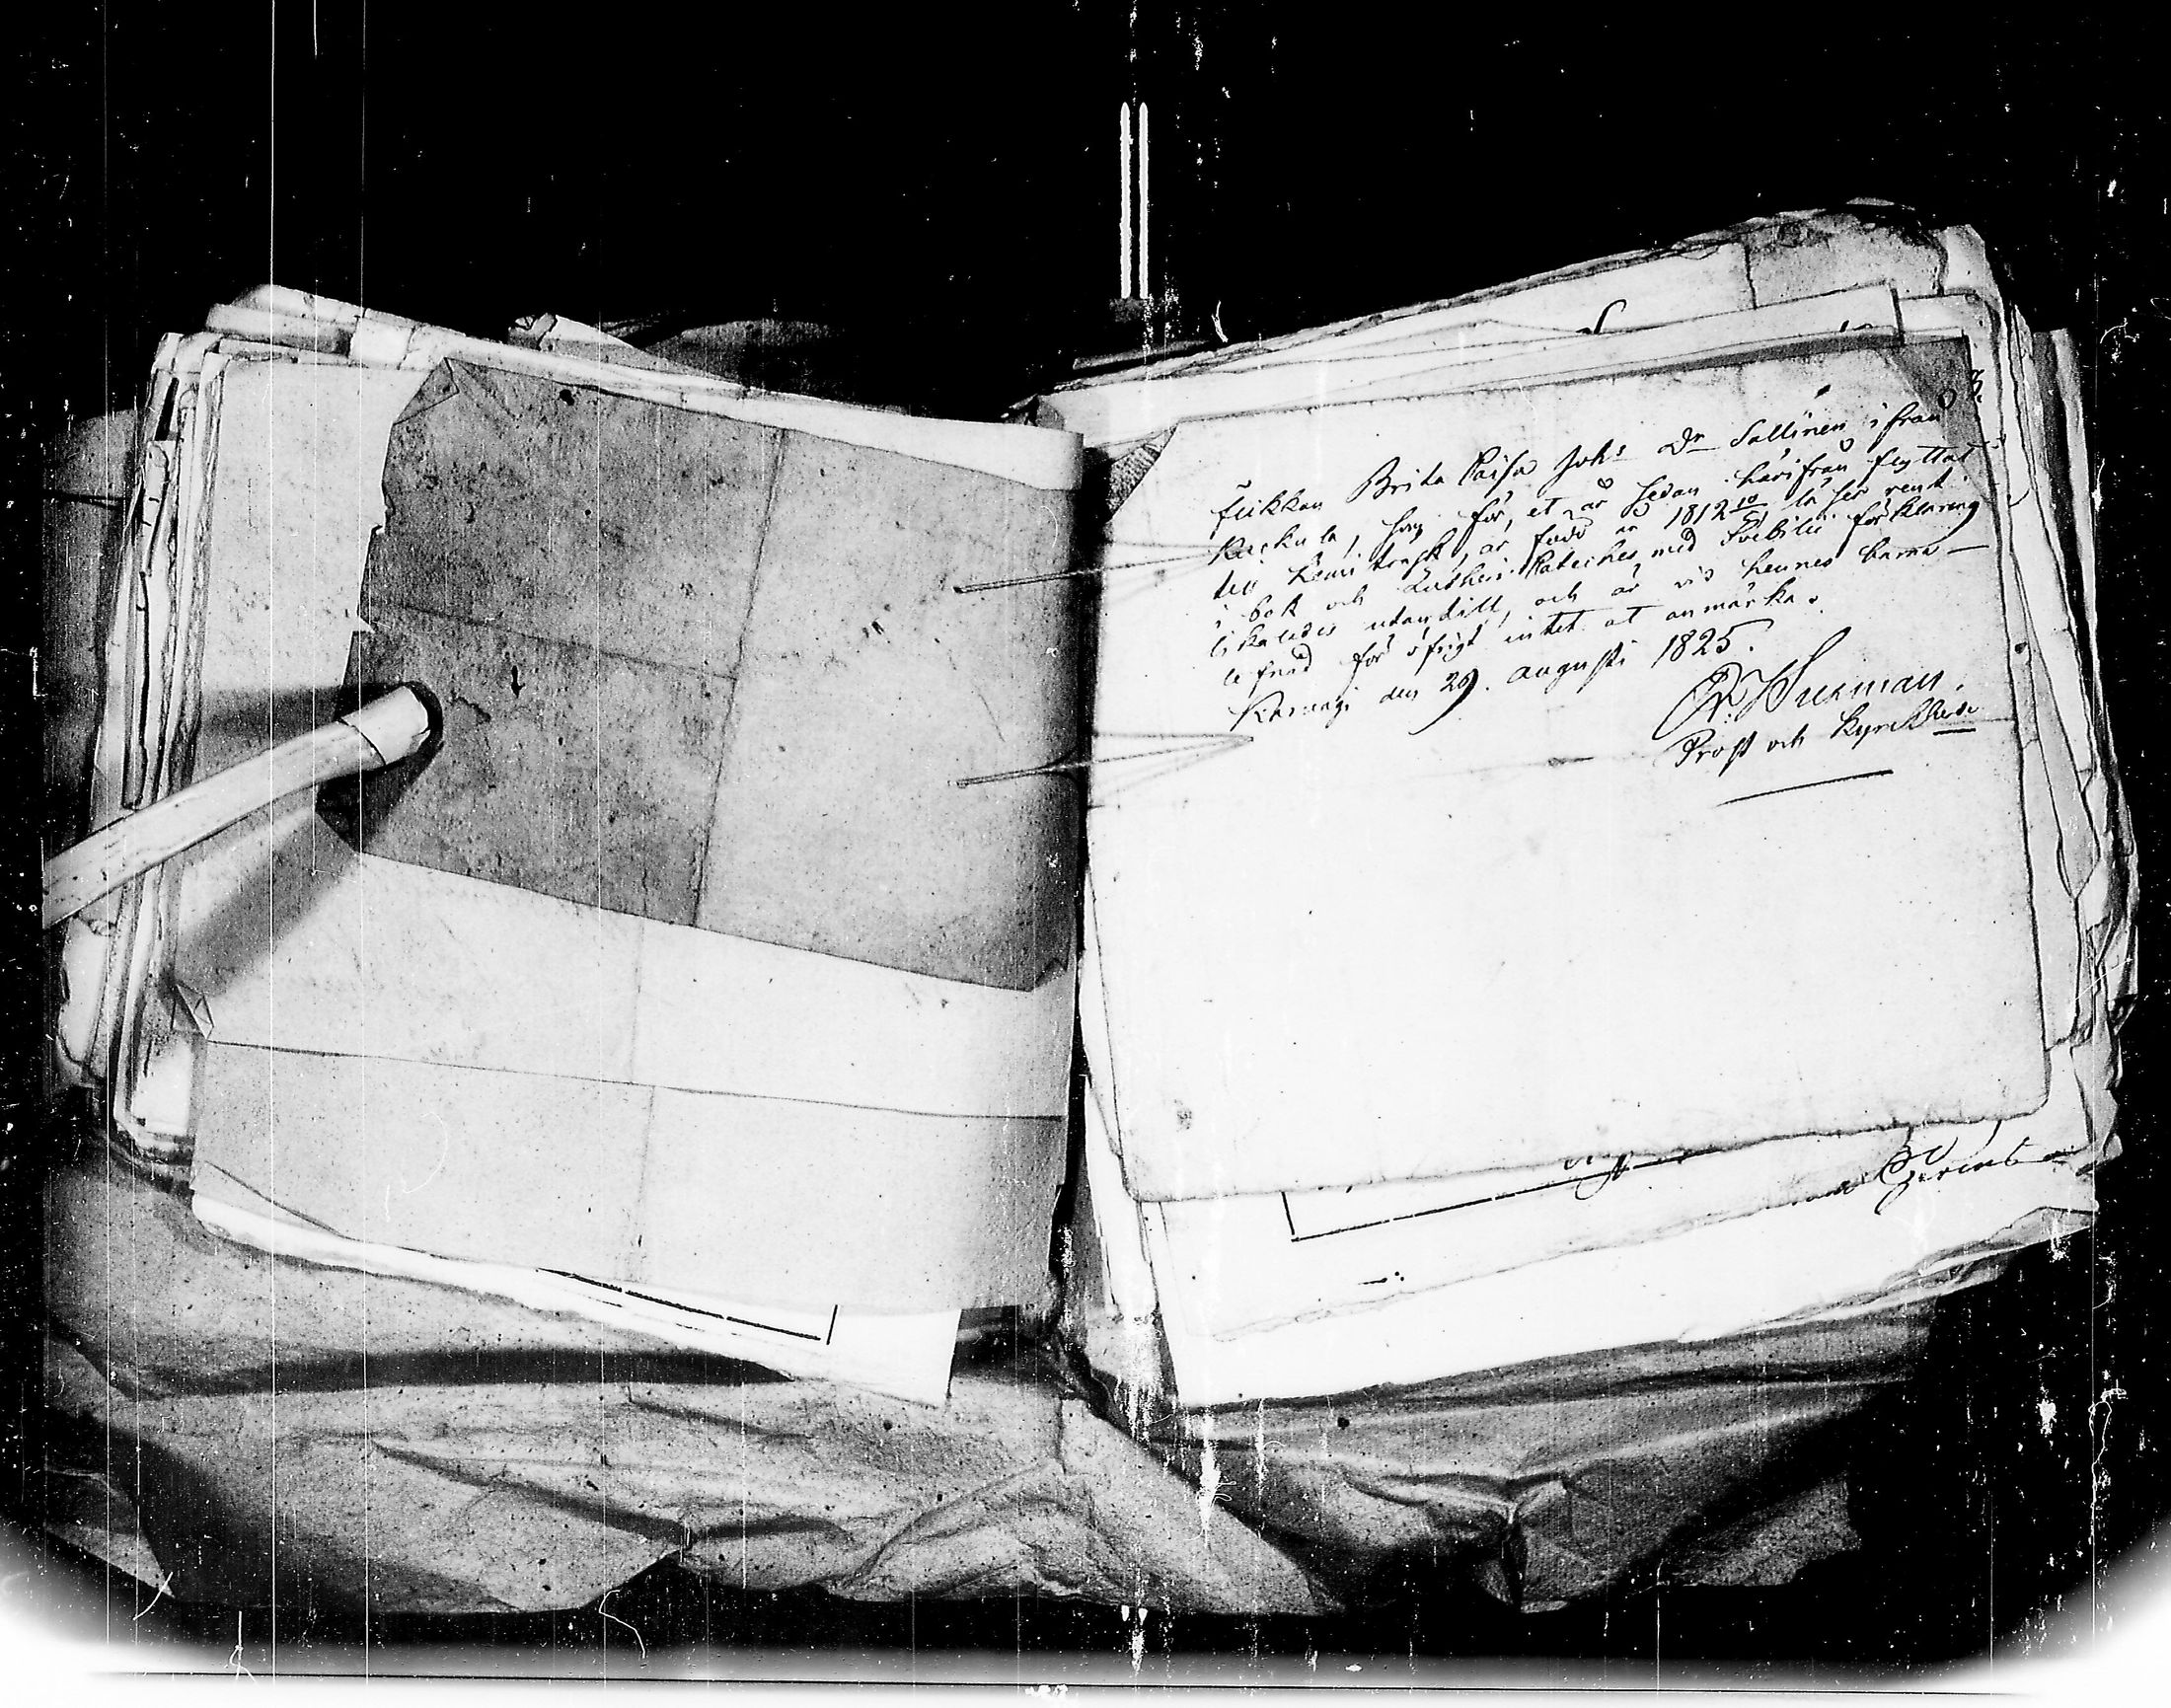 3.
Flickan Brita Caisa Johs Dr Sallinen ifrån
Kuckula, som för et år sedan härifrån flyttat
till Kemi Träsk, är född år 1812 10/5, läser rent
i bok och Lutheri Cateches med Svebilii förklaring
likaledes utantill, och är vid hennes barna-
lefnad för öfrigt intet at anmärka.
Karungi den 29. Augusti 1825.
Wiman.
Prost och Kyrckherde